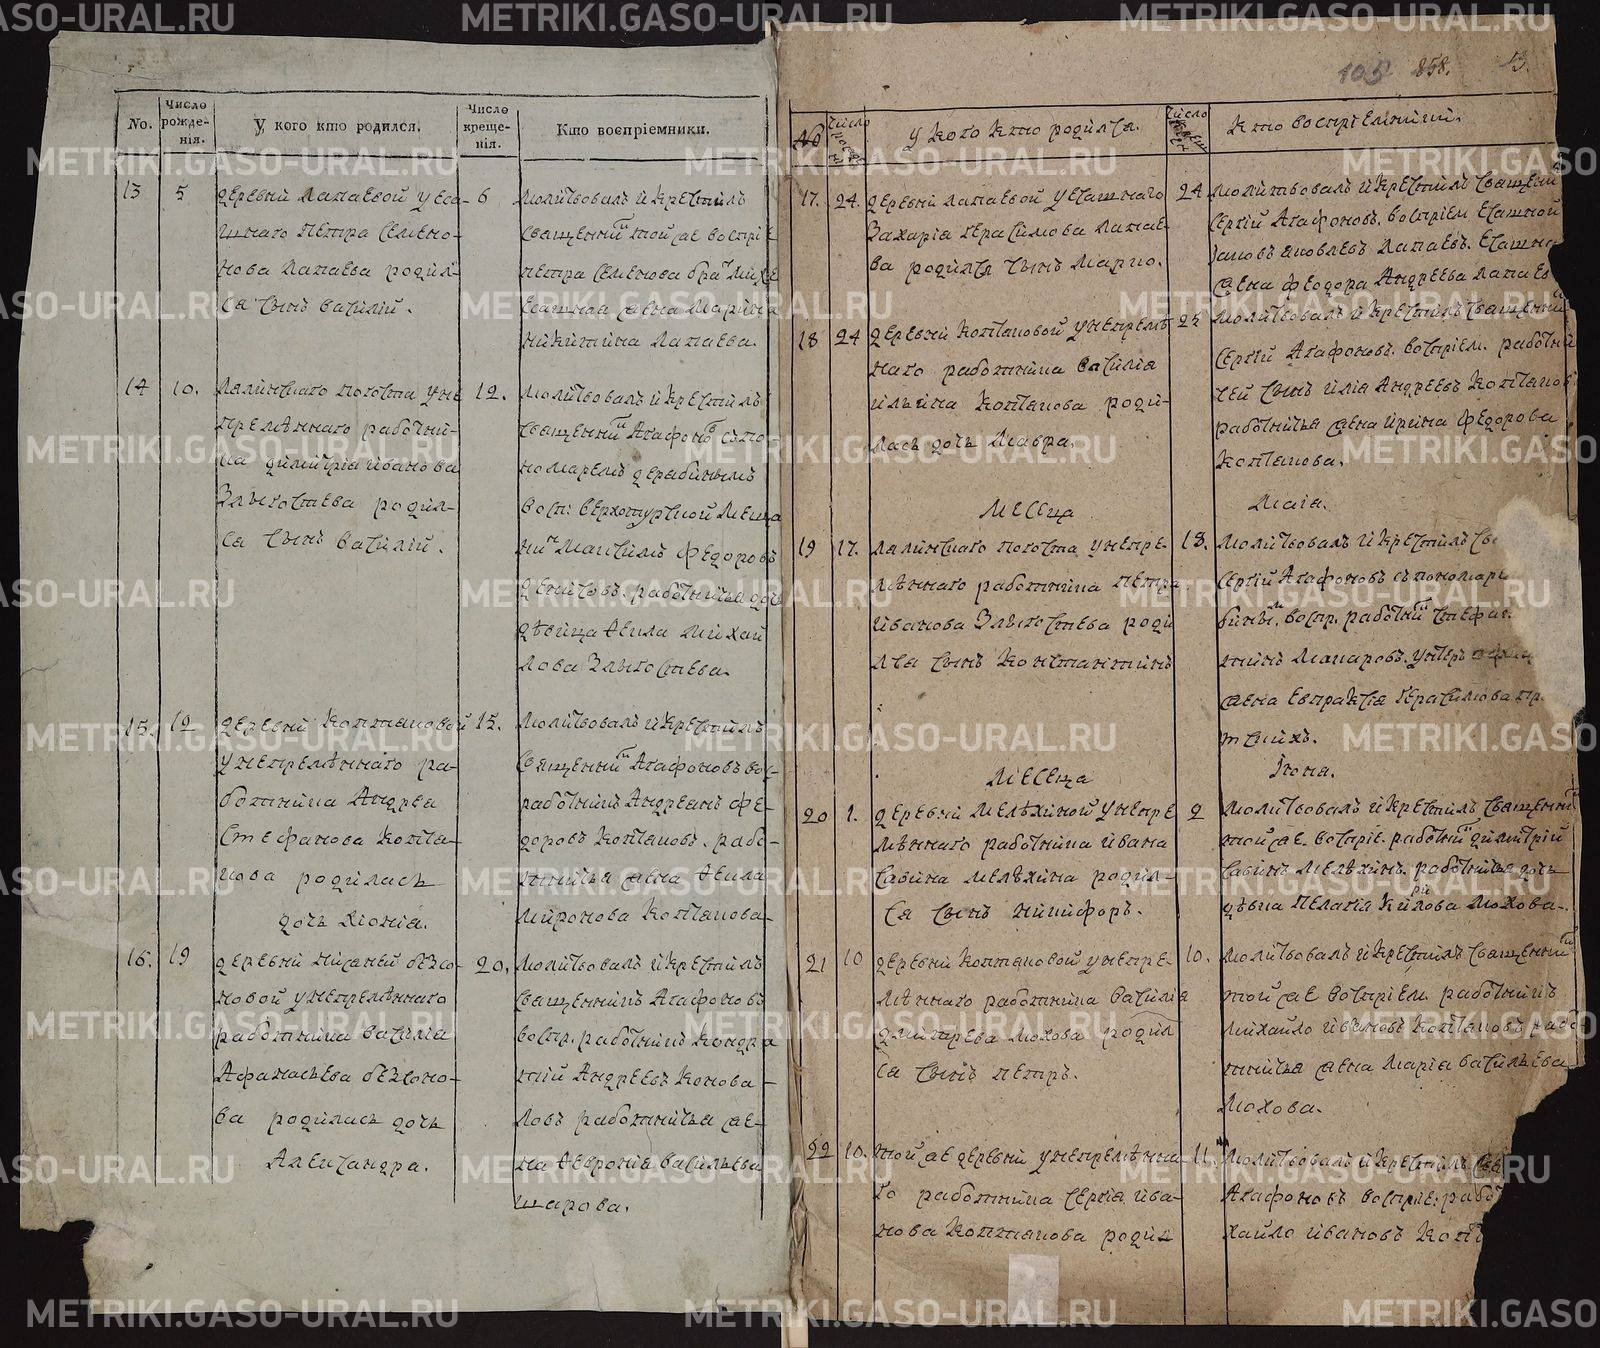 105 858. 53.
No. Число рожденія. У кого кто родился. Число крещенія. Кто воспріемники.
13 5 деревни Лапаевой у еса-
шнаго Петра Семено-
нова Лапаева родил-
са сынъ Василий.
6 молитвовалъ и крестилъ
священниⷦ҇ той же воспріе
Петра Семенова браⷮ
есашнаа жена Марина
Никитина Лапаева.
14 10. Лялинскаго погоста уне
премѣннаго работни-
ка Димитріа Иванова
Злыгостева родил-
са сынъ Василий.
12. молитвовалъ и крестилъ
священниⷦ Агафоновъ съ по
номаремъ Дерабинымъ
восп: верхотурской меща
ниⷩ Маⷦсимъ Федоровъ
работничьа дочь
дѣвица Феⷦла Михай
лова Злыгостева.
15. 12 деревни Коптяковой
унепремѣннаго ра-
ботника Андреа
Стефанова Коптя-
кова родилась
дочь Хіониа.
15. молитвовалъ и крестилъ
священниⷦ Агафоновъ вос-
работникъ Андреанъ Фе-
доровъ Коптяковъ. рабо-
тничьа жена Феⷦла
Миронова Коптякова-
16. 19 деревни Нижней Бѣзсо-
новой унепремѣннаго
работника Василіа
Афанасьева Бѣзсоно-
ва родилась дочь
Александра.
20. молитвовалъ и крестилъ
священникъ Агафоновъ
воспр. работникъ Кондра
тий Андреевъ Конова-
ловъ работничьа же-
на Февроніа Васильева
Шарова.
№ Число У кого кто родилса. Число Кто воспріемники.
17. 24. деревни Лапаевой у есашнаго
Захаріа Герасимова Лапае-
ва родилса сынъ Марко.
24 молитвовалъ и крестилъ священ
Сергій Агафоновъ. воспріем есашной
Іаковъ Яковлевъ Лапаевъ. есашна
жена Феодора Андреева Лапаев
18 24 деревни Коптяковой унепремѣ
наго работника Василіа
Ильина Коптякова роди-
лась дочь Мавра.
25 молитвовалъ и крестилъ священниⷦ
Сергій Агафоновъ. воспріем. работни
чей сынъ Иліа Андреевъ Коптяков
работничьа жена Ирина Федорова
Коптякова.
Месеца Маіа.
19 17. Лялинскаго погоста унепре-
мѣннаго работника Петра
Иванова Злыгостева роди
лса сынъ Константинъ
18. молитвовалъ и крестилъ св
Сергій Агафоновъ съ пономаре
биныⷨ. воспр. работниⷦ Стефа
тинъ Макаровъ. унтеръ
жена Евпраксіа Герасимова
Месеца Іюна.
20 1. деревни Мелѣхиной унепре
мѣннаго работника Ивана
Савина Мелѣхина родил-
са сынъ Никифоръ.
2 молитвовалъ и крестилъ священниⷦ
той же. воспріе. работниⷦ Димитрій
Савинъ Мелѣхинъ. работничьа дочь
дѣвка Пелагіа Кирилова Мохова-.
21 10 деревни Коптяковой унепре-
мѣннаго работника Василіа
Дмитрева Мохова родил
са сынъ Петръ.
10. молитвовалъ и крестилъ священниⷦ
той же воспріем. работникъ
Михайло Ивановъ Коптяковъ рабо
тничьа жена Маріа Васильева
Мохова.
22 10. той же деревни унепремѣнна-
го работника Сергіа Ива-
нова Коптякова родил
11. молитвовалъ и крестилъ свя
Агафоновъ воспріе: рабо
хайло Ивановъ Копт
METRIKI.GASO-URAL.RU